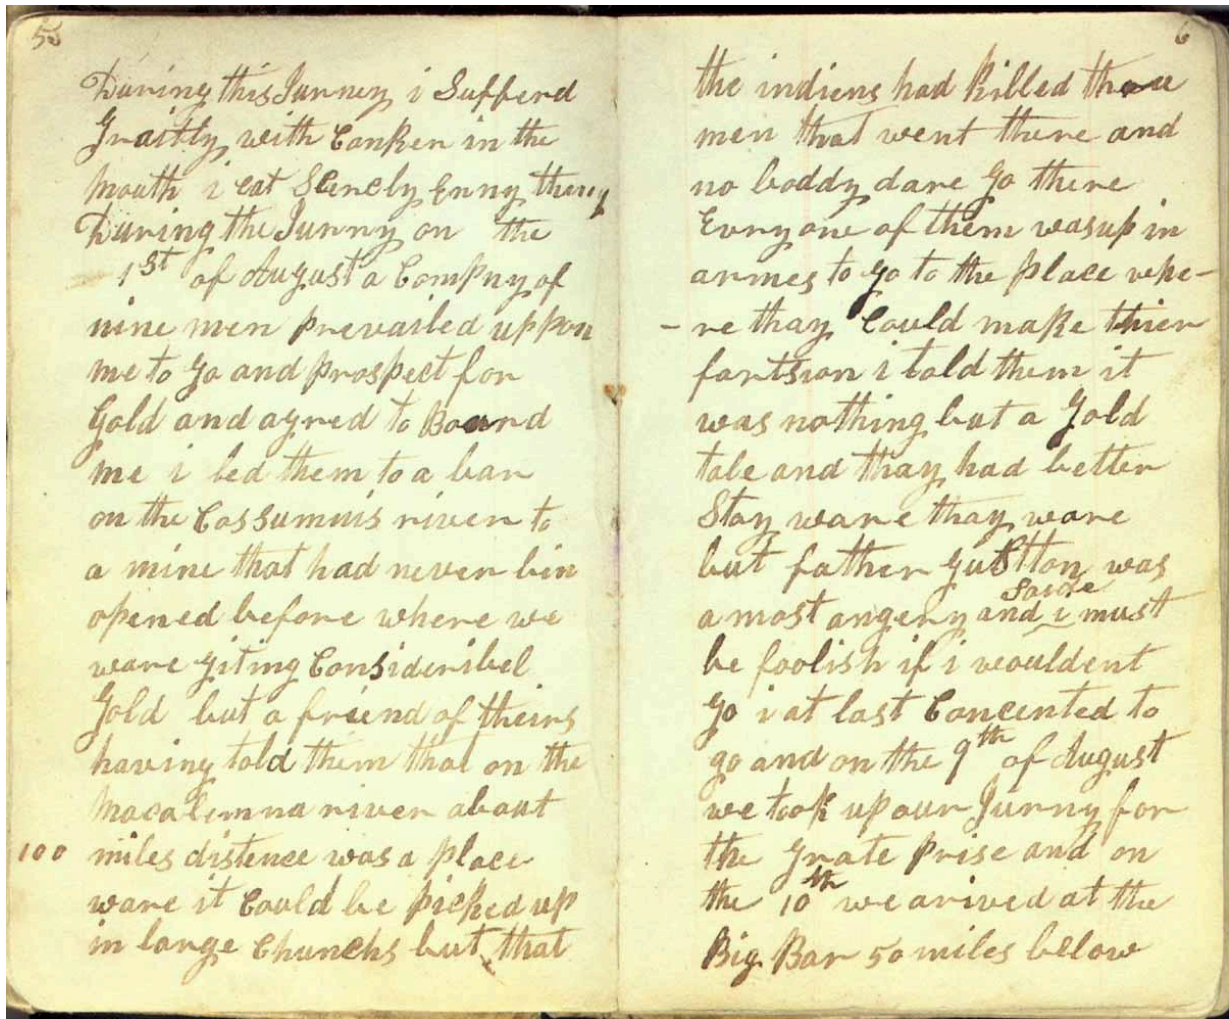 5
During this Jurney i Sufferd
Graitly with Canker in the
mouth i eat Scercly Enny thing
During the Jurny on the
1st of August a Compny of
nine men prevailed uppon
me to go and prospect for
Gold and agred to Board
me i led them to a bar
on the Cossumnis river to
a mine that had never bin
opened before where we
ware giting Consideribel
Gold but a friend of theirs
having told them that on the
Macalemna river about
100 miles distence was a place
ware it Could be picked up
in large Chunchs but that
6
the indiens had killed those
men that went there and
no boddy dare go there
Evry one of them was up in
armes to go to the place whe-
-re thay Could make thier
fortsion i told them it
was nothing but a Gold
tale and thay had better
Stay ware thay ware
but father was
a most angery and saide i must
be foolish if i wouldent
go i at last Concented to
go and on the 9th of August
we took up our Jurny for
the grate prise and on
the 10th we arived at the
Big Bar 50 miles below